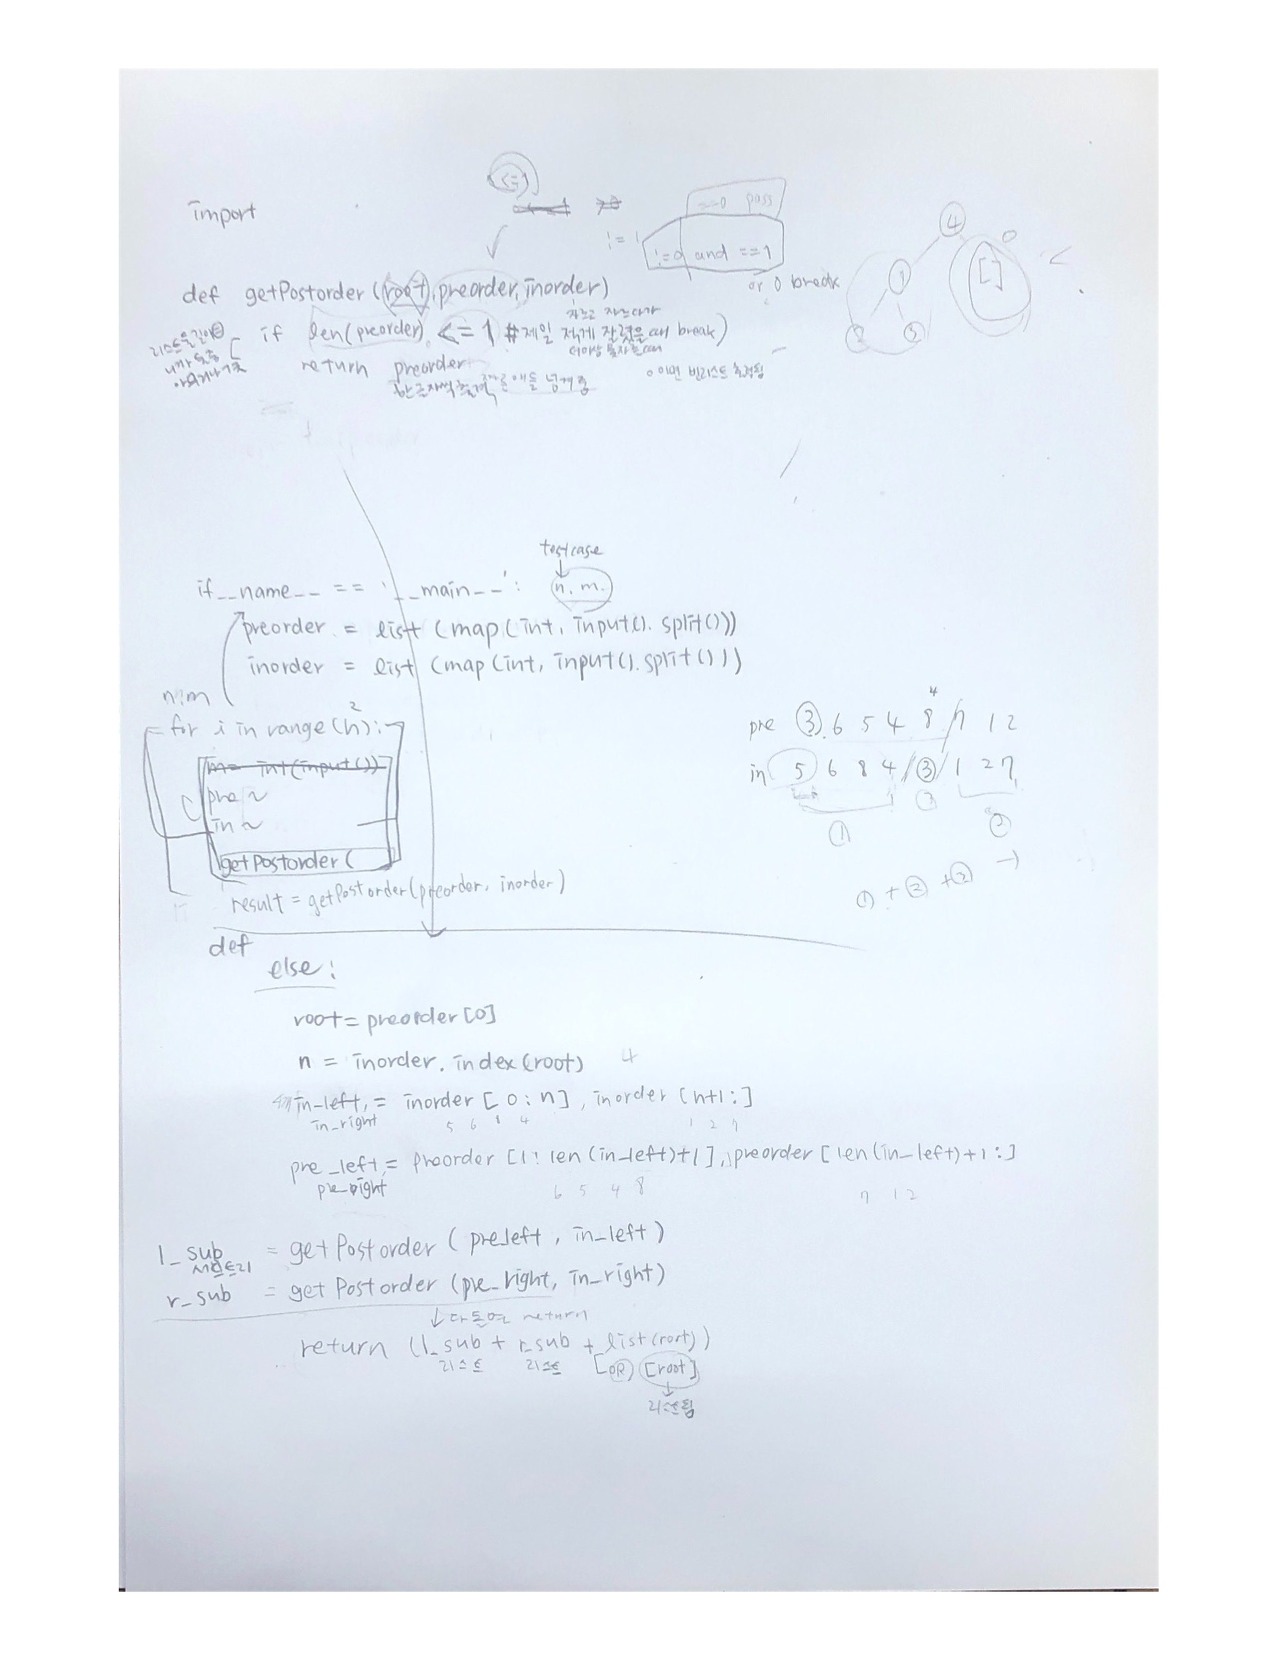 <=1
import
==0 pass
!= 1
!=0 and ==1
or 0 break
4
0
[ ]
def getPostorder (root, preorder, inorder)
자르고 자르다가
if len(preorder) <= 1 #제일 적게 잘렸을때 break)
return preorder
0이면 빈리스트 출력됨
testcase
n, m.
if __name__ == '__main__':
preorder = list (map(int, input().split()))
inorder = list (map(int, input().split()))
n, m
2
for i in range(n):
m = int(input())
pre ~
in ~
getPostorder (
result = getPostorder(preorder, inorder)
4
pre 3 6 5 4 8 / 7 1 2
in 5 6 8 4 / 3 / 1 2 7
① ③ ②
① + ② + ③
def
else:
root = preorder [0]
n = inorder. index(root) 4
in_left, = inorder [0:n], inorder [n+1:]
in_right
5 6 8 4 1 2 7
pre_left, = preorder [1: len(in_left)+1], preorder [len(in_left)+1:]
pre_right
6 5 4 8 7 1 2
l_sub = getPostorder (pre_left, in_left)
서브트리
r_sub = getPostorder (pre_right, in_right)
↓ return
return (l_sub + r_sub + list(root))
리스트 리스트 OR [root]
리스트됨